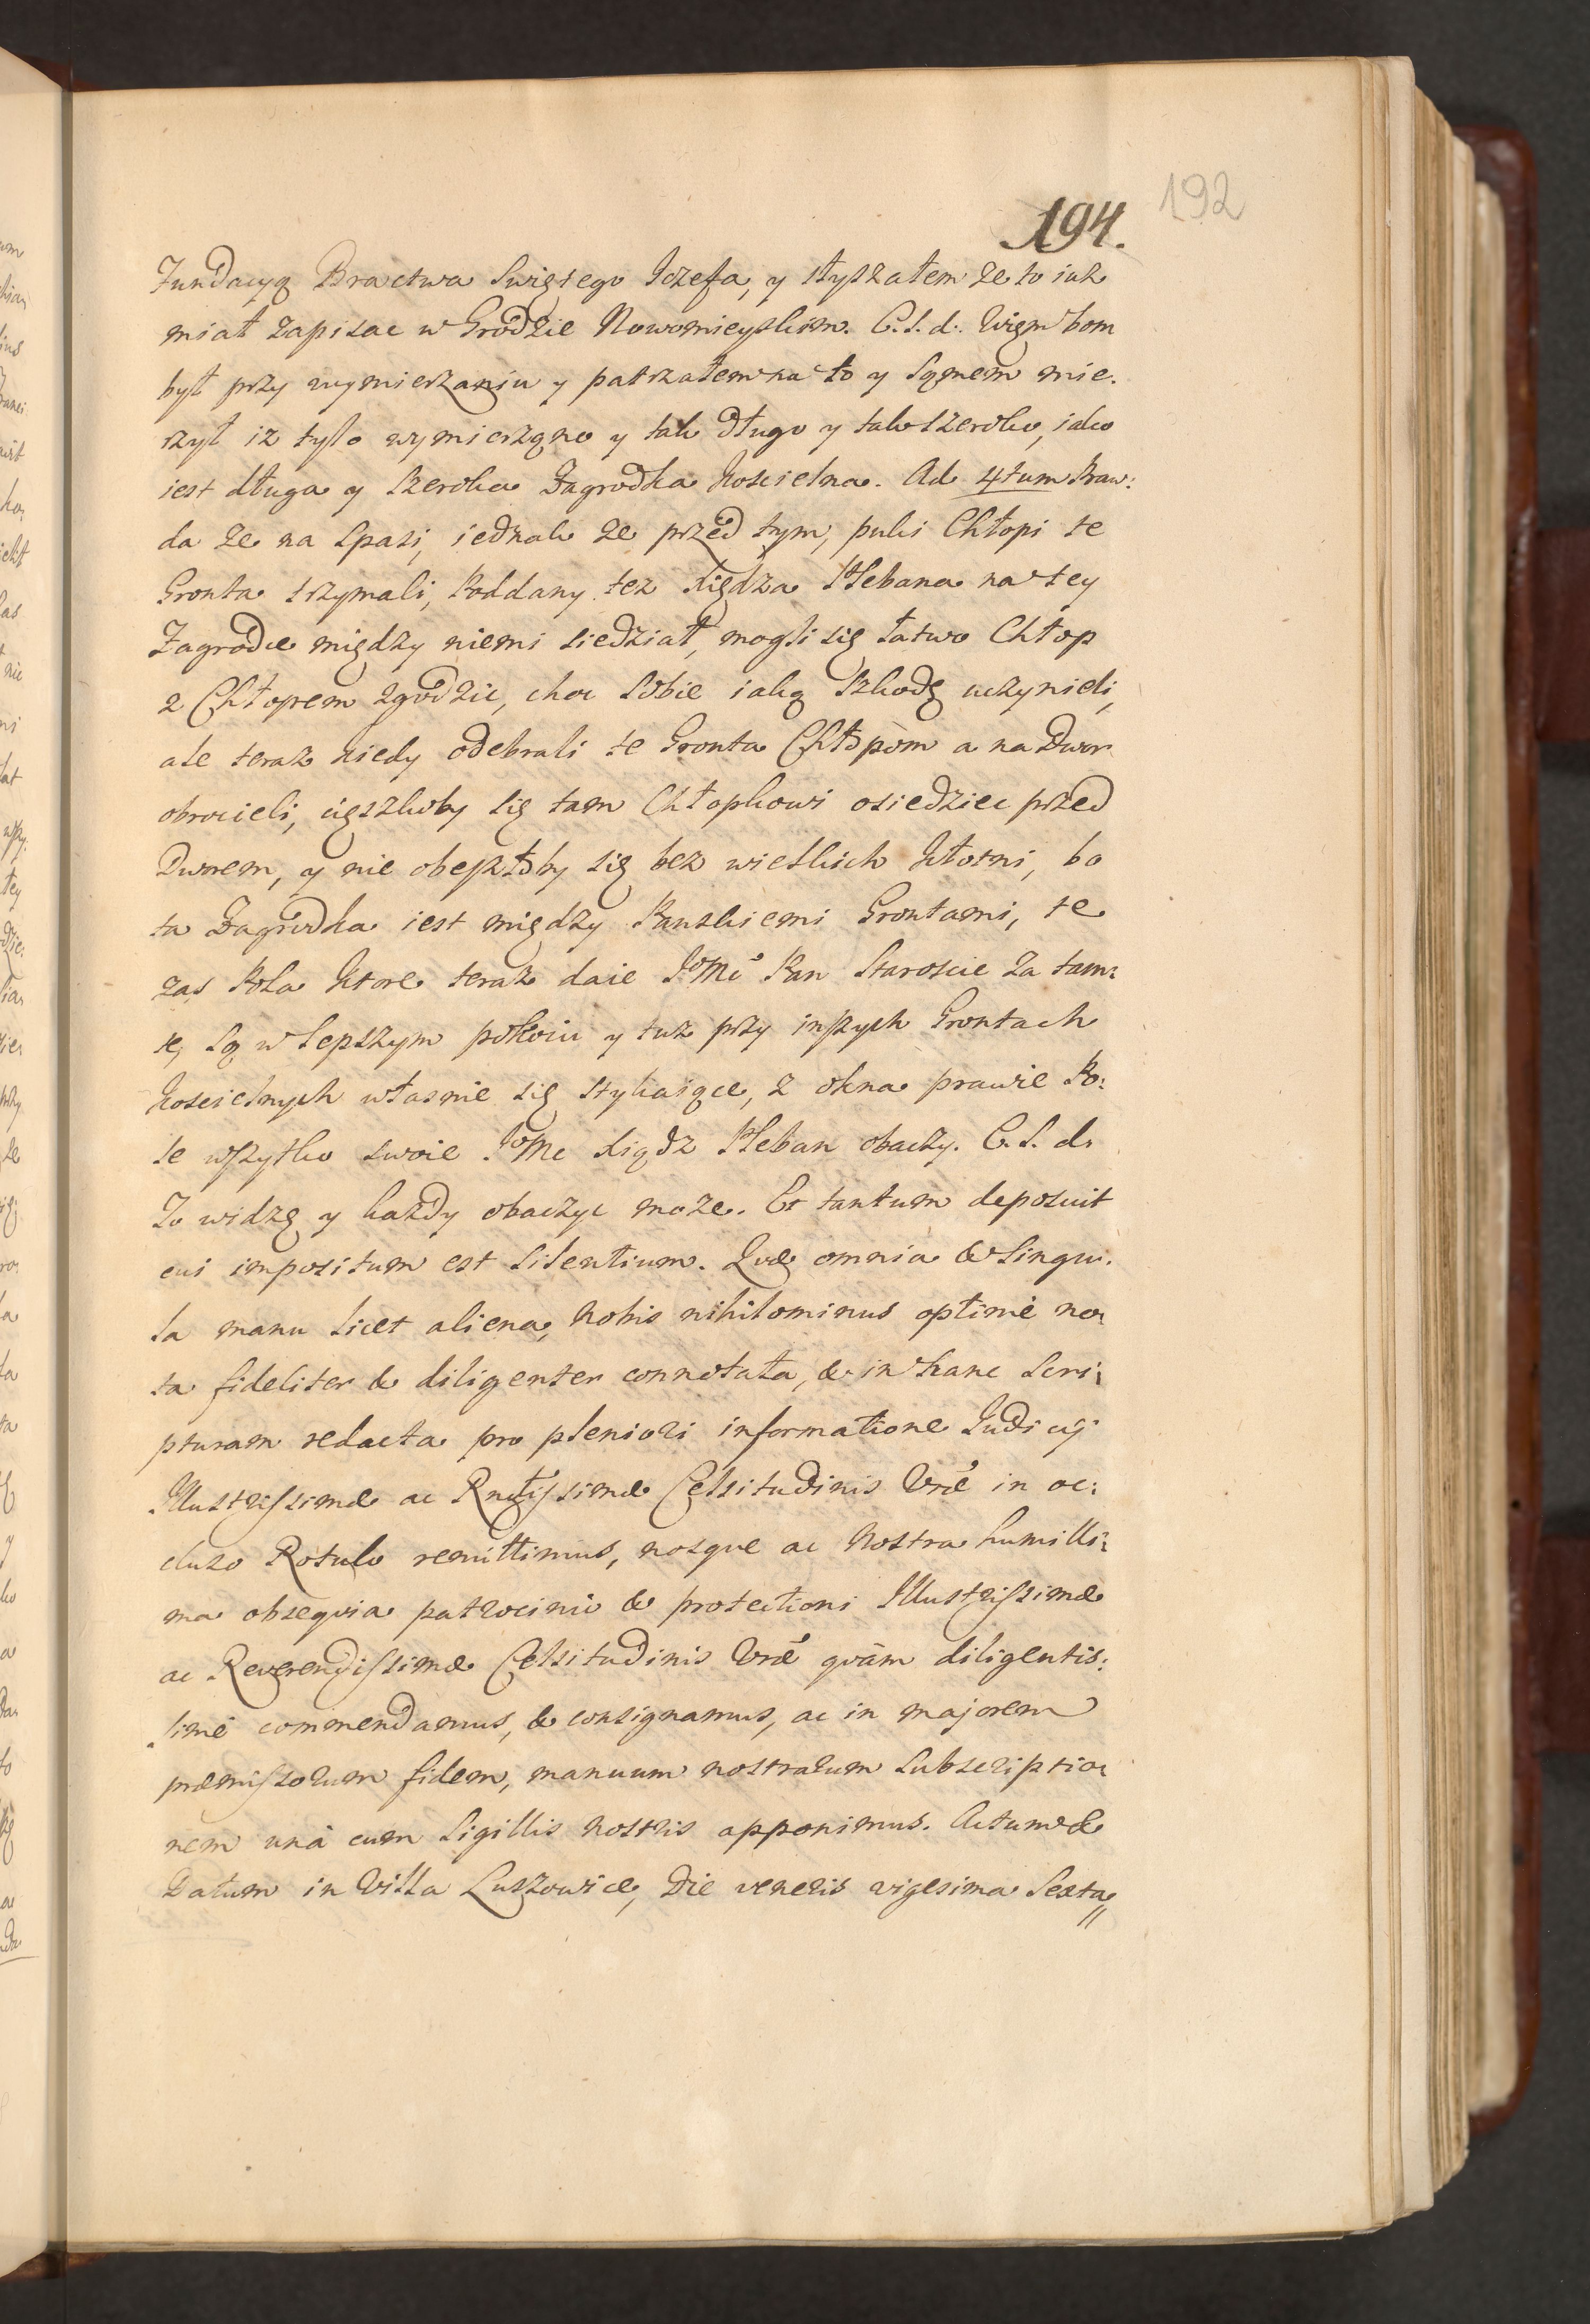 192
194.
Fundacyą Bractwa Swiętego Iozefa, y słyszałem ze to iuz
miał zapisac w Grodzie Nowomieyskim. C. S. d. Wiem bom
był przy wymierzaniu y patrzałem na to y sąmem mie.
rzył iz tylo wymierząno y tak długo y tak szeroko, iako
iest długa y szeroka Zagrodka Koscielna. Ad 4tum Praw:
da ze na Spasi, iednak ze przed tym, puki Chłopi te
Gronta trzymali, Poddany tez Xiędza Plebana na tey
Zagrodce między niemi siedział, mogli się łatwo Chłop
z Chłopem zgodzic, choc sobie iaką szkodę uczynieli,
ale teraz kiedy odebrali te Gronta Chłopòm a na Dwor
obrocieli, cięszkoby się tam Chłopkowi osiedziec przed
Dworem, y nie obeszłoby się bez wielkich kłotni, bo
ta Zagrodka iest między Panskiemi Grontami, te
zas Pola ktore teraz daie JoMć Pan Staroscic za tam:
te, są w lepszym pokoiu y tuz przy inszych Grontach
koscielnych własnie się stykaiące, z okna prawie Po:
le wszytko swoie JoMc Xiądz Pleban obaczy. C. S. d.
To widzę y kazdy obaczyc moze. Et tantum deposuit
cui impositum est silentium. Quæ omnia & singu:
la manu licet aliena, nobis nihilominus optimè no:
ta fideliter & diligenter connotata, & in hanc scri:
pturam redacta pro pleniori informatione Judicij
Illustrissimæ ac Rndissimæ Celsitudinis Vræ in oc:
cluso Rotulo remittimus, nosque ac nostra humilli:
ma obsequia patrocinio & protectioni Illustrissimæ
ac Reverendissimæ Celsitudinis Vræ quàm diligentis:
simè commendamus, & consignamus, ac in majorem
præmissorum fidem, manuum nostrarum subscriptio:
nem unà cum Sigillis nostris apponimus. Actum &
Datum in Villa Luszowice, Die veneris vigesima Sexta